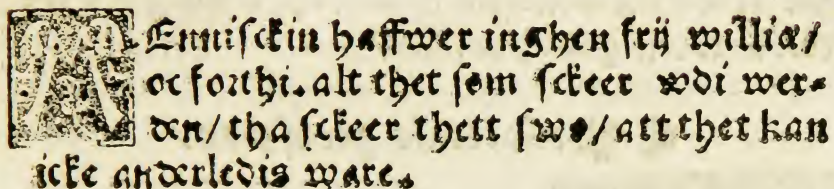 MEnniſckin haffwer inghen frij williæ/
oc forthi. alt thet ſom ſckeer wdi wer⸗
den/ tha ſckeer thett ſwo/ att thet kan
icke anderledis ware.